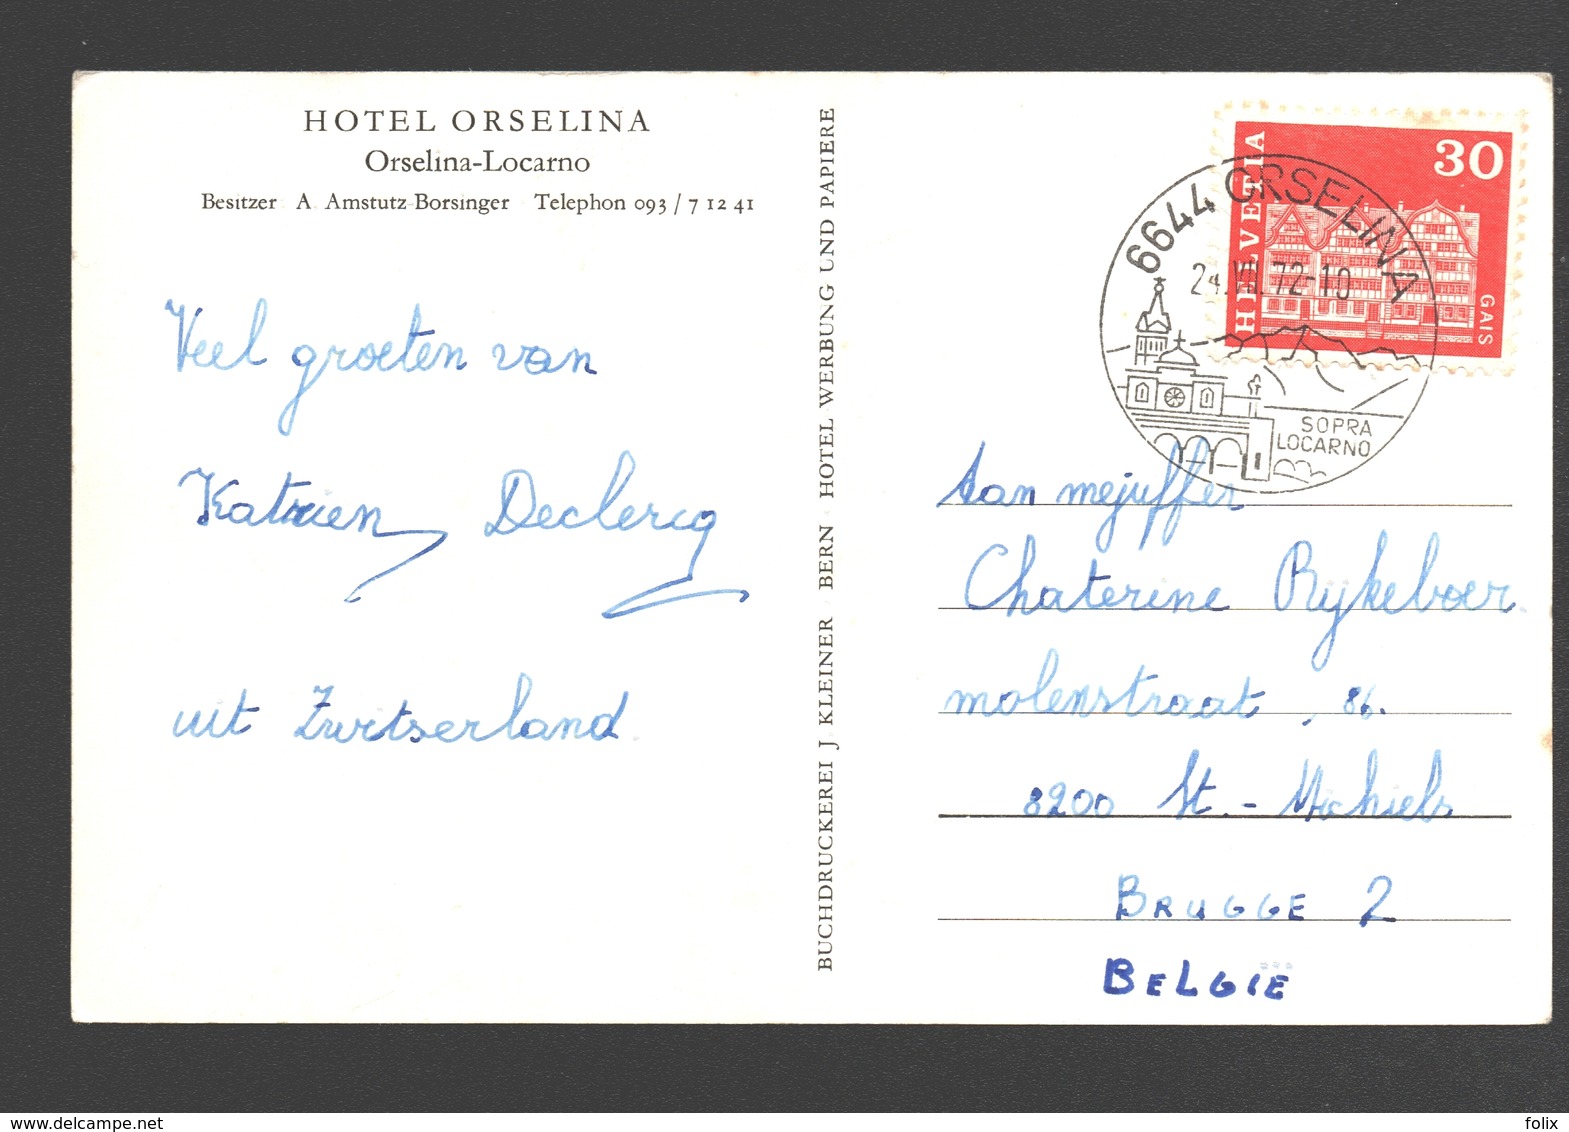 HOTEL ORSELINA
Orselina-Locarno
Besitzer A. Amstutz-Borsinger Telephon 093 / 7 12 41
Veel groeten van
Katrien Declercq
uit Zwitserland.
BUCHDRUCKEREI J. KLEINER BERN HOTEL-WERBUNG UND PAPIERE
HELVETIA
30
GAIS
6644 ORSELINA
24.VII.72-10
SOPRA
LOCARNO
Aan mejuffer
Chaterine Rijkeboer.
molenstraat, 86.
8200 St.-Michiels
BRUGGE 2
BELGIE
www.delcampe.net
folix